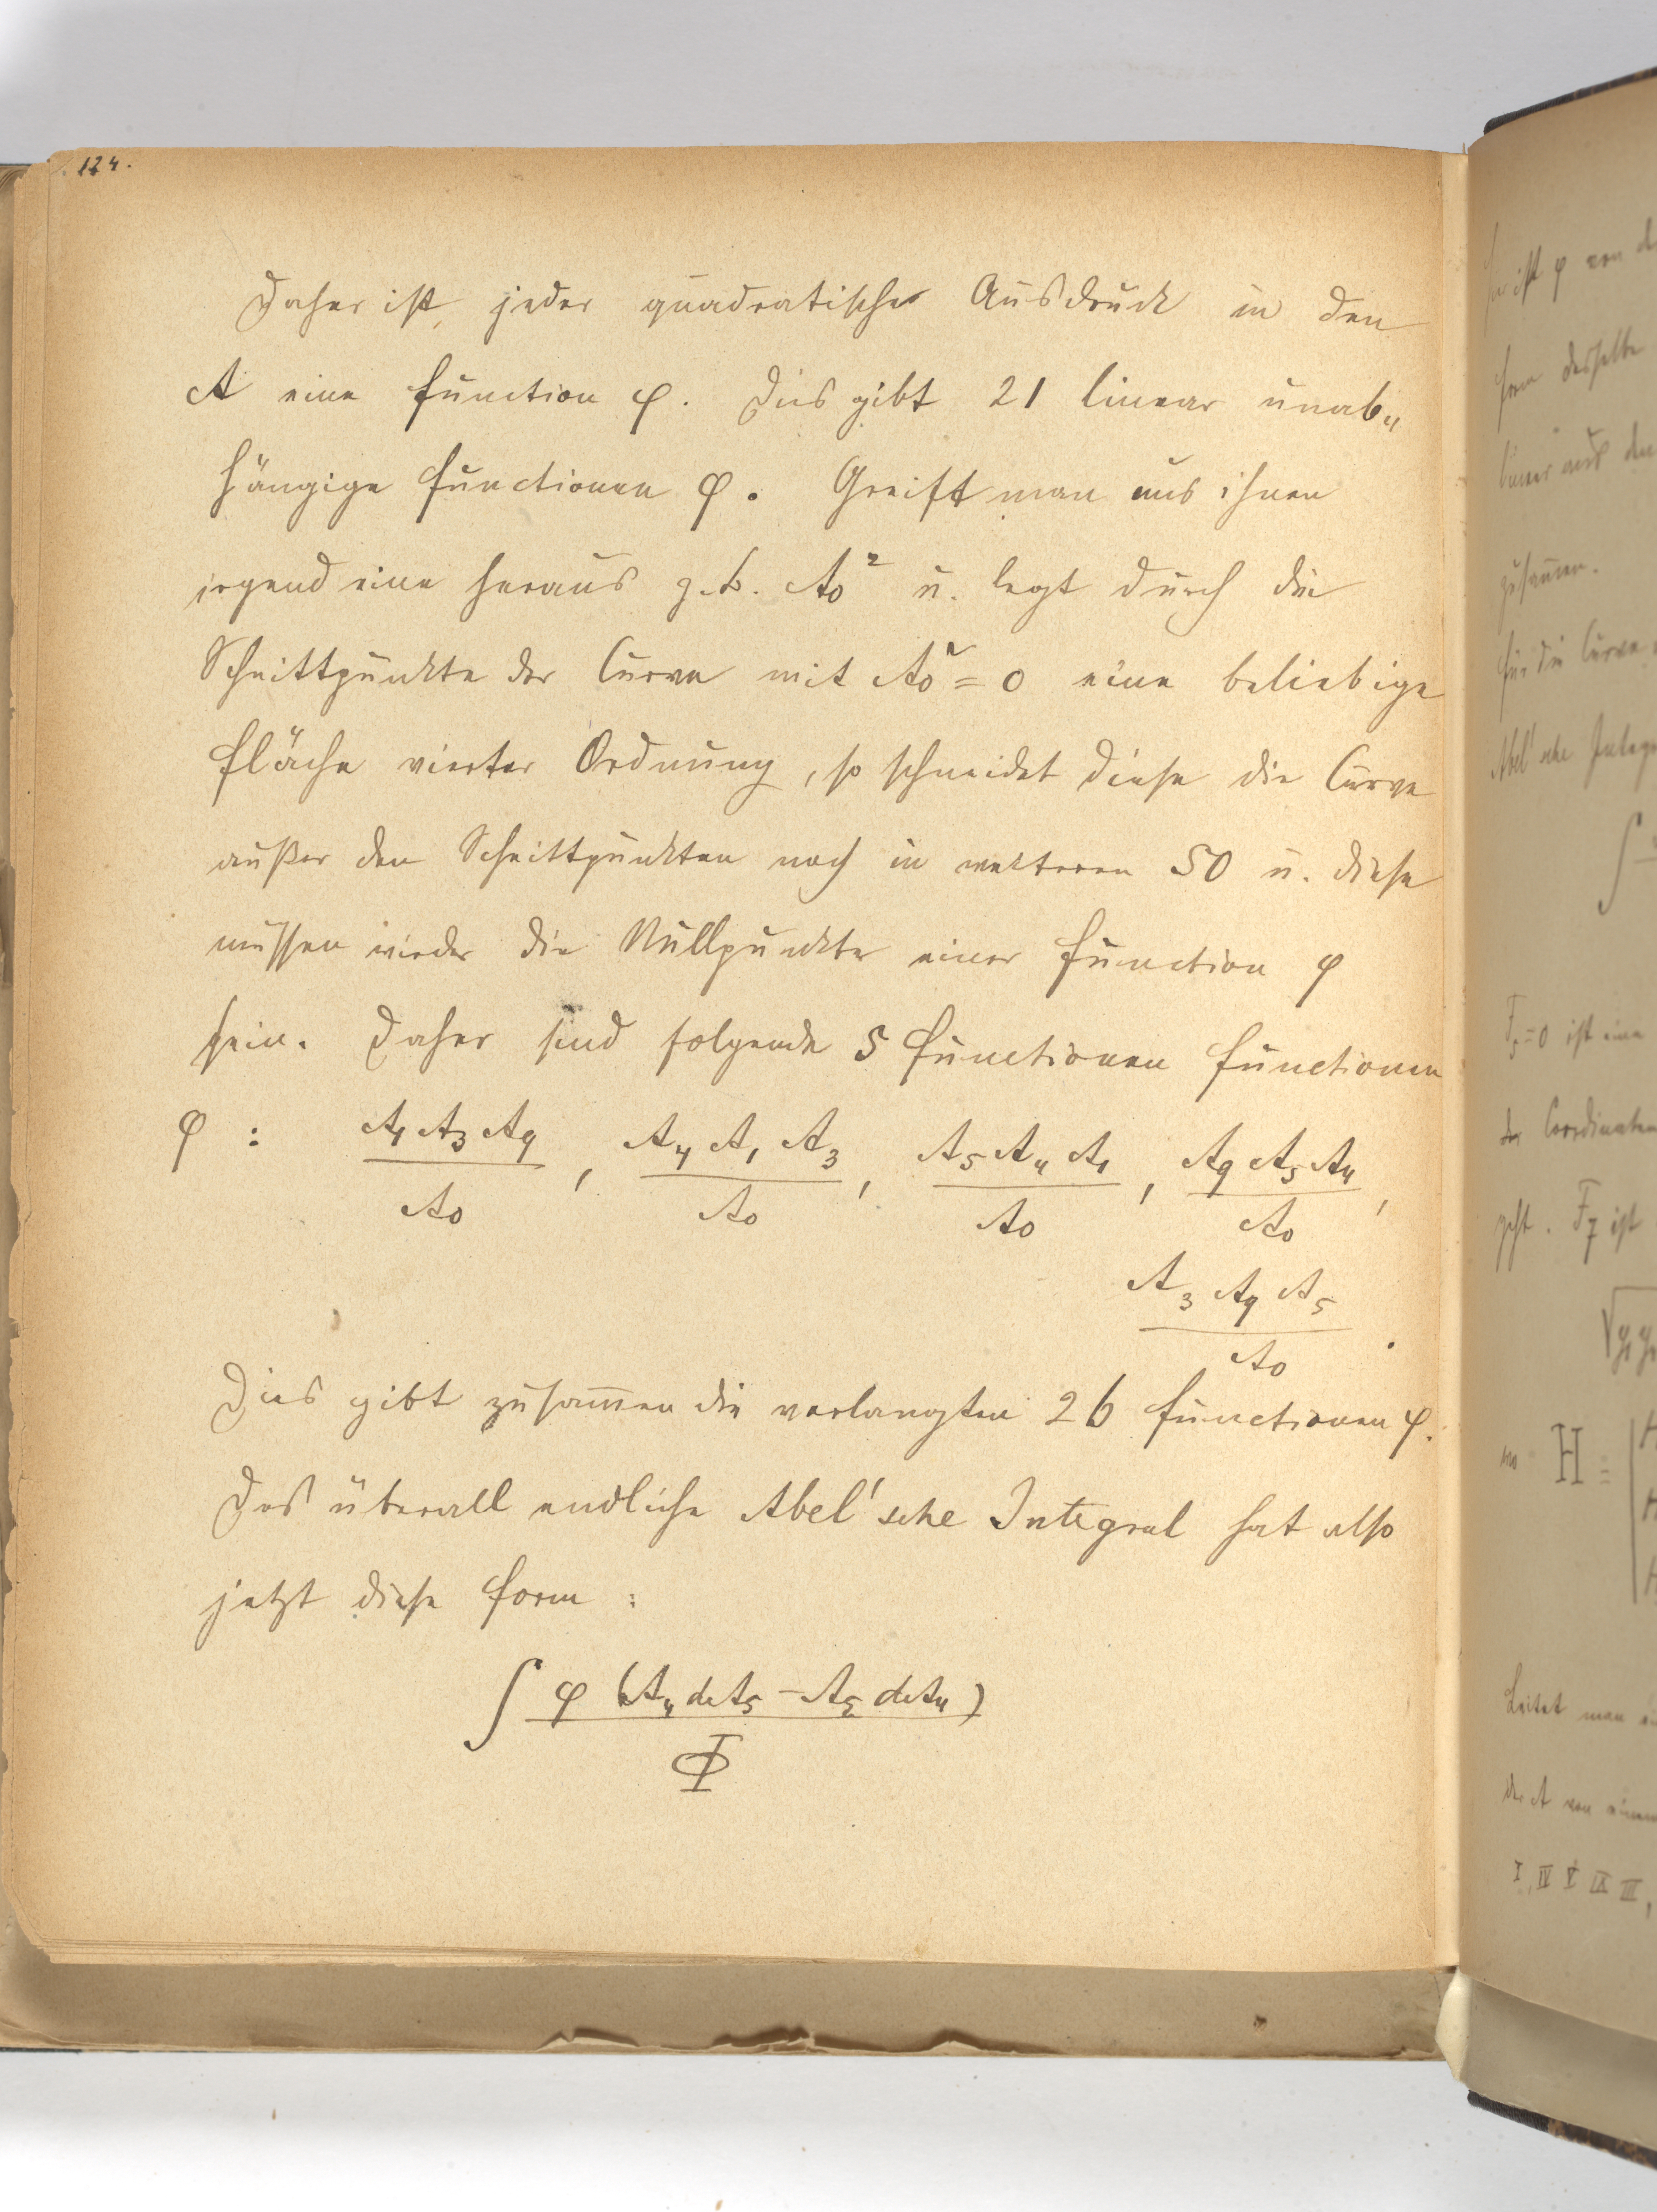 124.
Daher ist jeder quadratische Ausdruck in den
A eine Function φ. Dies gibt 21 linear unab„
hängige Functionen φ. Greift man aus ihnen
irgend eine heraus z.B. A₀² u. legt durch die
Schnittpunkte der Curve mit A₀² = 0 eine beliebige
Fläche vierter Ordnung, so schneidet diese die Curve
außer den Schnittpunkten noch in weiteren 50 u. diese
müssen wieder die Nullpunkte einer Function φ
sein. Daher sind folgende 5 Functionen Functionen
φ : A₁ A₃ A₉ / A₀ , A₄ A₁ A₃ / A₀ , A₅ A₄ A₁ / A₀ , A₉ A₅ A₄ / A₀ ,
A₃ A₉ A₅ / A₀ .
Dies gibt zusam̅en die verlangten 26 Functionen φ.
Das überall endliche Abel'sche Integral hat also
jetzt diese Form :
∫ φ (A₄ dA₅ − A₅ dA₄) / Φ
ist φ von
Form desselben
linear aus den
zusam̅en.
für die Curve
Abel'sche Integ
∫
F₅ = 0 ist eine
der Coordinaten
geht. F₇ ist
H =
Leitet man
der A von einem
I, IV V IX III,